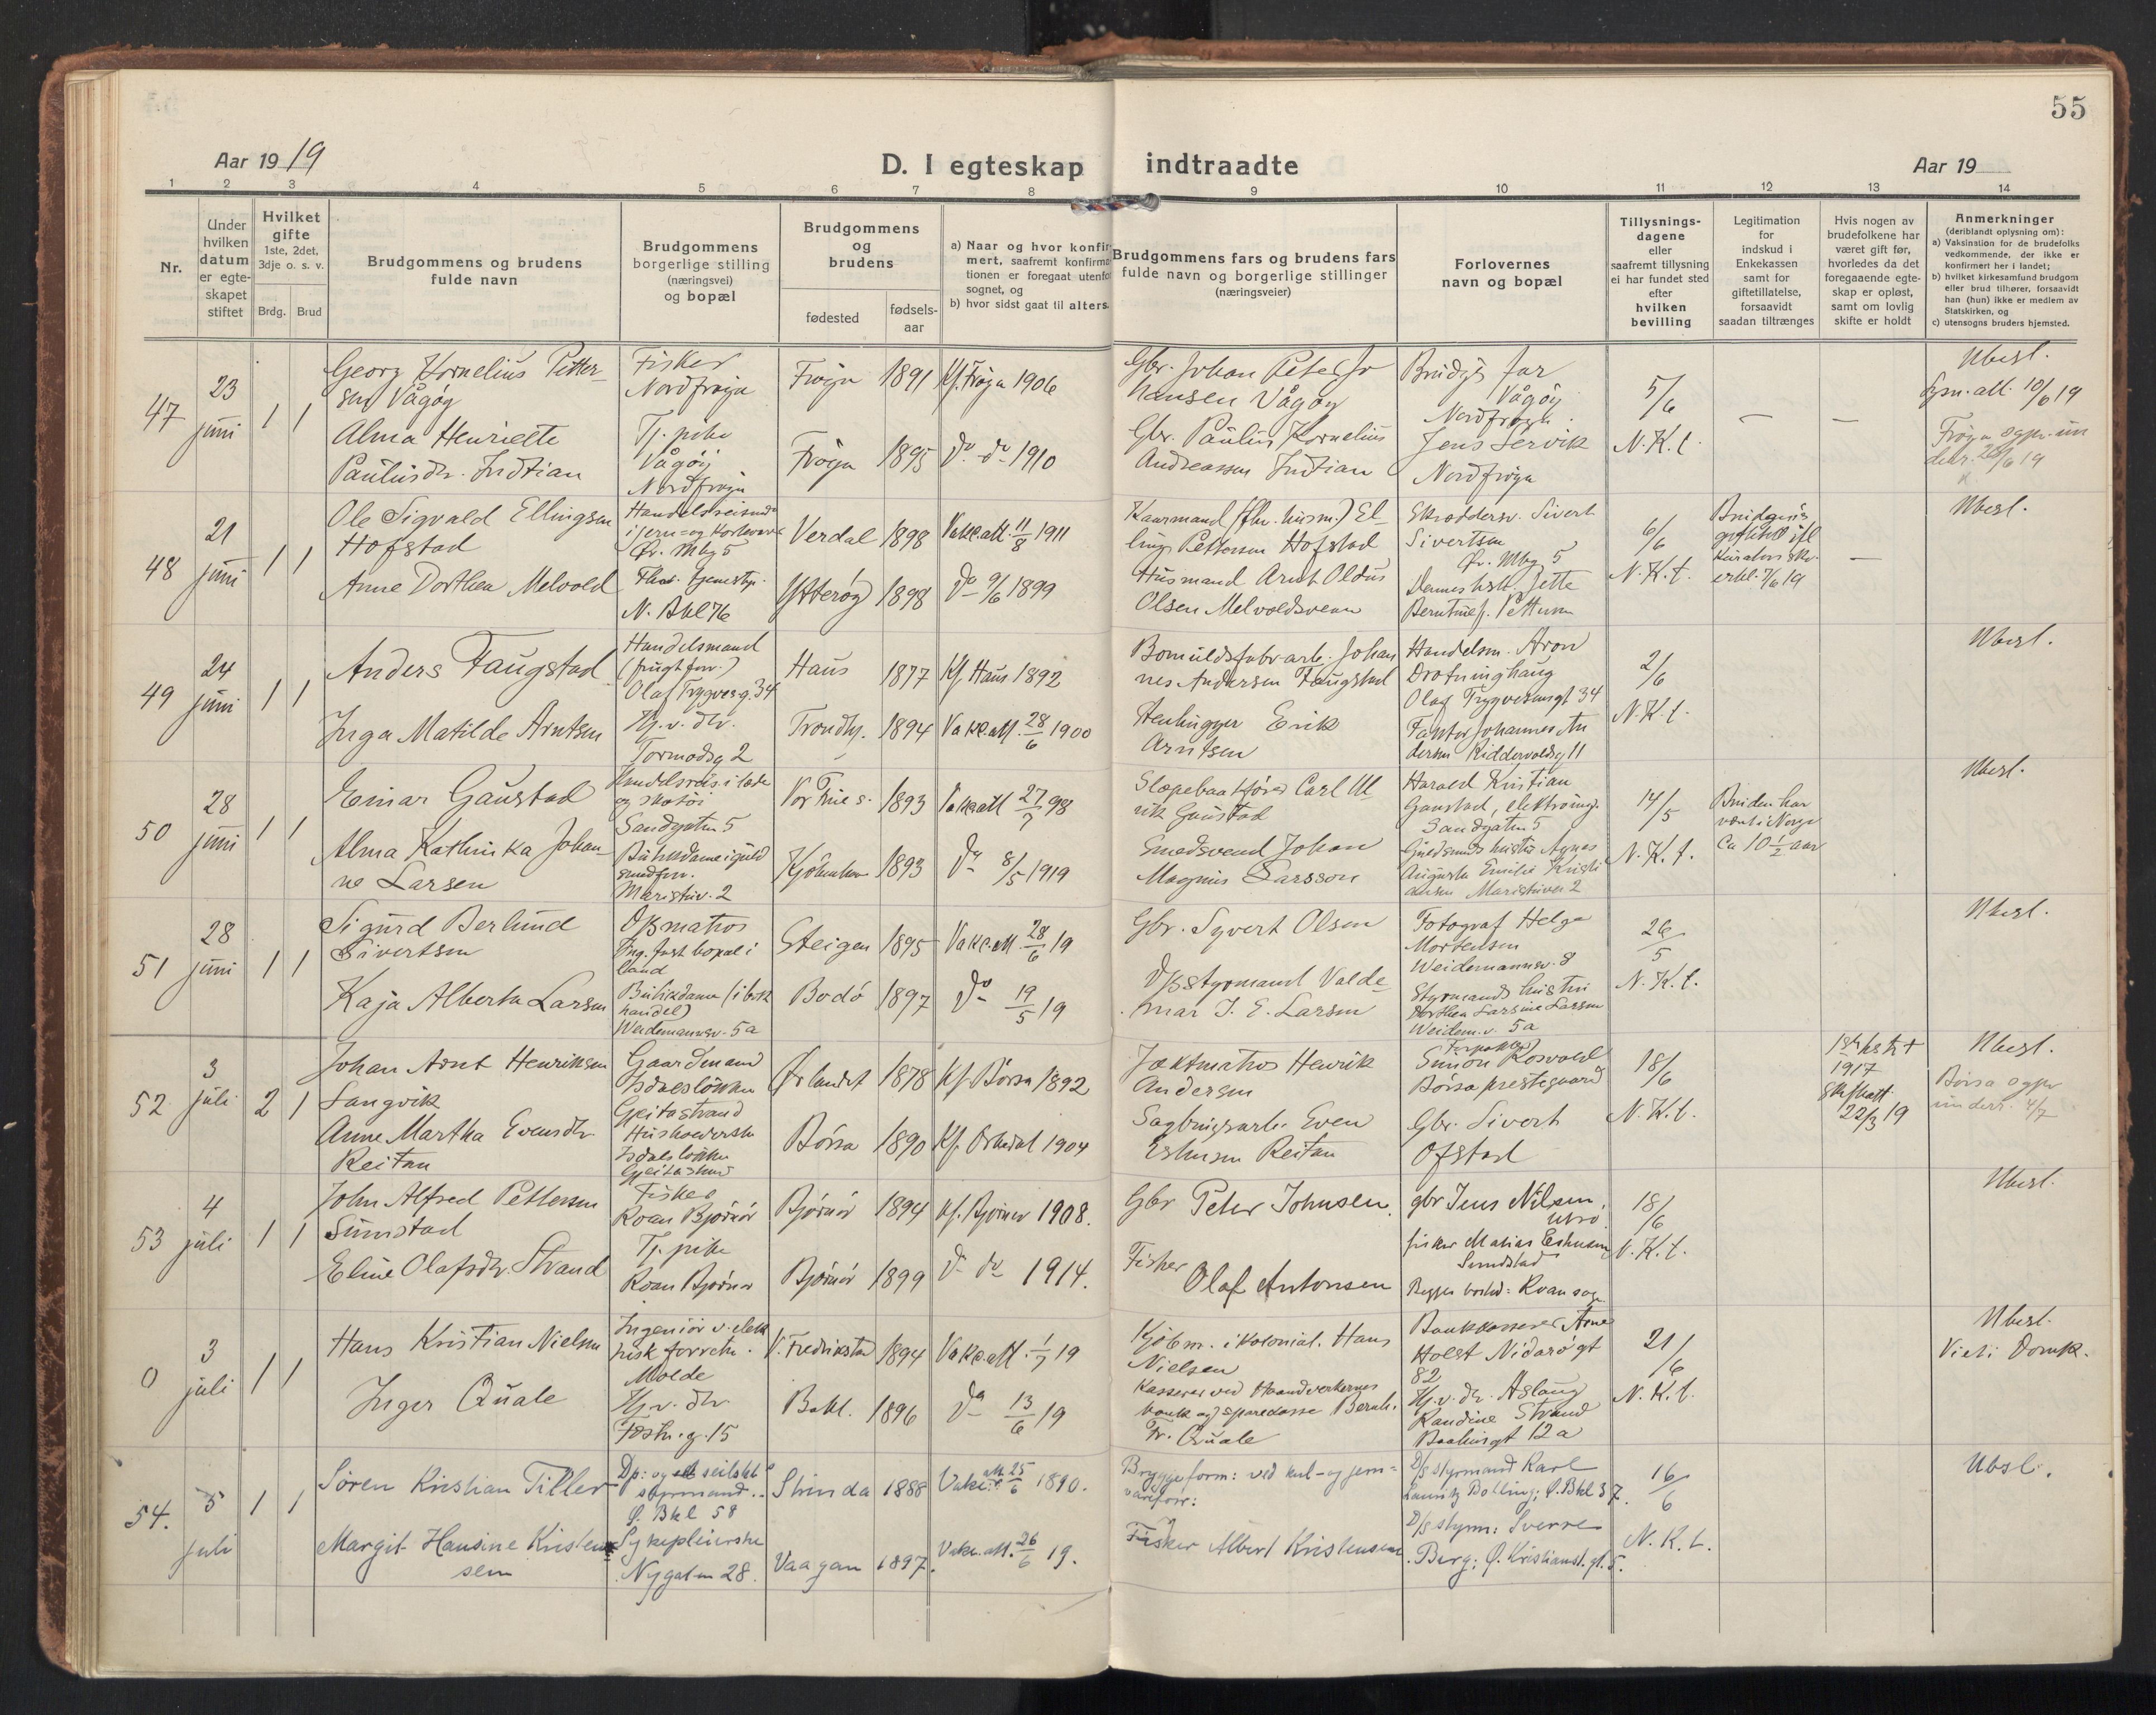 55
Aar 19 19
D. I egteskap indtraadte
Aar 19
1 2 3 4 5 6 7 8 9 10 11 12 13 14
Nr.
Under hvilken datum er egteskapet stiftet
Hvilket gifte
1ste, 2det, 3dje o. s. v.
Brdg. Brud
Brudgommens og brudens fulde navn
Brudgommens borgerlige stilling (næringsvei) og bopæl
Brudgommens og brudens
fødested
fødselsaar
a) Naar og hvor konfirmert, saafremt
b) hvor sidst gaat til alters.
Brudgommens fars og brudens fars fulde navn og borgerlige stillinger (næringsveier)
Forlovernes navn og bopæl
Tillysningsdagene eller saafremt tillysning ei har fundet sted efter hvilken bevilling
Legitimation for indskud i Enkekassen samt for giftetillatelse, forsaavidt saadan tiltrænges
Hvis nogen av brudefolkene har været gift før, hvorledes da det foregaaende egteskap er opløst, samt om lovlig skifte er holdt
Anmerkninger
(deriblandt oplysning om):
a) Vaksination for de brudefolks vedkommende, der ikke er konfirmert her i landet;
b) hvilket kirkesamfund brudgom eller brud tilhører, forsaavidt han (hun) ikke er medlem av Statskirken, og
c) utensogns bruders hjemsted.
47
23 juni
1 1
Georg Kornelius Pettersen Vågøy
Fisker
Nordfrøya
Frøya 1891 Kf. Frøya 1906
Gbr. Johan Peter Johansen Vågøy
Brudgs far
Vågøy
Nordfrøya
5/6
N.K.t.
Alma Henriette
Paulusdr. Indtian
Tj. pike
Vågøy
Nordfrøya
Frøya 1895 do do 1910
Gbr. Paulus Kornelius
Andreassen Indtian
Jens Servik
Nordfrøya
Ubesl.
10/6 19
48
21 juni
1 1
Ole Sigvald Ellingsen
Hofstad
Handelsreisende
Ø. Mbg 5
Verdal 1898 Vakc.att. 11/8 1911
Kaarmand
Ellings Pettersen Hofstad
Skræddersv. Sivert
Sivertsen
Ø. Mbg 5
6/6
N.K.t.
7/6 19
Ubesl.
Anne Dorthea Melvold
N. Bkl 76
Ytterøy 1898 do 9/6 1899
Husmand Arnt Oldus
Olsen Melvoldsveen
49
24 juni
1 1
Anders Faugstad
Handelsmand
(frugtforr.)
Olaf Trygvesg. 34
Haus 1877 Kf. Haus 1892
Bomuldsfabrarb. Johannes Andersen Faugstad
Handelsm. Aron
Drotninghaug
Olaf Trygvesønsgt 34
2/6
N.K.t.
Ubesl.
Inga Matilde Arntsen
Hj. v. dtr.
Tormodsg 2
Trondhj. 1894 Vakc.att. 28/6 1900
Stenhugger Erik
Arntsen
Johannes Andersen Riddervoldsg 11
50
28 juni
1 1
Einar Gaustad
Handelsreis. i læder
og skotøi
Sandgaten 5
Vor Frue s. 1893 Vakc.att 27/7 98
Slæpebaatfører Carl Ulrik Gaustad
Harald Kristian
Gaustad, elektroing.
Sandgaten 5
14/5
N.K.t.
Bruden har
været i Norge
Ca 10 1/2 aar
Ubesl.
Alma Kathinka Johanne Larsen
Butikdame i guldsmedforr.
Maristuv. 2
Kjøbenhavn 1893 do 8/5 1919
Smedsvend Johan
Magnus Larsson
Guldsmeds hustru Agnes
Augusta Emilie Kristiansen Maristuveien 2
51
28 juni
1 1
Sigurd Berlund
Sivertsen
D/Smatros
Ing. fast bopæl i
land
Steigen 1895 Vakc.att. 28/6 19
Gbr. Syvert Olsen
Fotograf Helge
Mortensen
Weidemannsv. 8
26/5
N.K.t.
Ubesl.
Kaja Alberta Larsen
Butikdame (i bokhandel)
Weidemannsv. 5a
Bodø 1897 do 19/5 19
D/Sstyrmand Valdemar J. E. Larsen
Styrmands hustru
Dorthea Larsine Larsen
Weidem.v. 5a
52
3 juli
2 1
Johan Arnt Henriksen
Langvik
Gaardmand
Geitastrand
Ørlandet 1878 Kf. Børsa 1892
Jaktmatros Henrik
Andersen
Forpakter
Simon Rosvold
Børsa prestegaard
18/6
N.K.t.
1ste hstr +
1917
Skifteatt.
22/3 19
Ubesl.
Børsa
4/7
Anne Martha Evensdtr.
Reitan
Husholderske
Geitastrand
Børsa 1890 Kf. Orkedal 1904
Sagbruksarb. Even
Estensen Reitan
Gbr. Sivert
Ofstad
53
4 juli
1 1
John Alfred Pettersen
Sumstad
Fisker
Roan Bjørnør
Bjørnør 1894 Kf. Bjørnør 1908.
Gbr Peter Johnsen.
gbr Jens Nilsen
18/6
N.K.t.
Ubesl.
Eline Olafsdtr. Strand
Tj. pike
Roan Bjørnør
Bjørnør 1899 do do 1914.
Fisker
Olaf Antonsen
fisker Matias Estensen
Sumstad
Begges bosted: Roan sogn
0
3 juli
1 1
Hans Kristian Nielsen
Ingeniør v. elektrisk forretn.
Molde
V. Fredrikstad 1894 Vakc.att. 1/7 19
Kjøbm. i kolonial. Hans
Nielsen
Bankkasserer Arne
Holst Nidarøgt
82
21/6
N.K.t.
Ubesl.
Viet i Domk.
Inger Quale
Hj. v. dtr.
Bakl. 1896 do 13/6 19
Kasserer ved Haandverkernes
bank og sparekasse Bernh.
Fr. Quale
Hj. v. dtr. Aslaug
Randine Strand
Bakkegt 12a
54.
5 juli
1 1
Søren Kristian Tiller
Dp: og seilsk.
styrmand.
Ø. Bkl 58
Strinda 1888 Vakc. att. 25/6 1890.
Bryggeform: ved kul- og jernvareforr:
D/S styrmand Karl
Lauritz Bolling; Ø. Bkl 37.
16/6
N.K.t.
Ubsl.
Margit Hansine Kristensen
Sykepleierske
Nygaten 28.
Vaagan 1897. Vakc. att. 26/6 19.
Fisker Albert Kristensen
D/S styrm: Sverre
Berg; Ø. Kristianst. gt. 5.